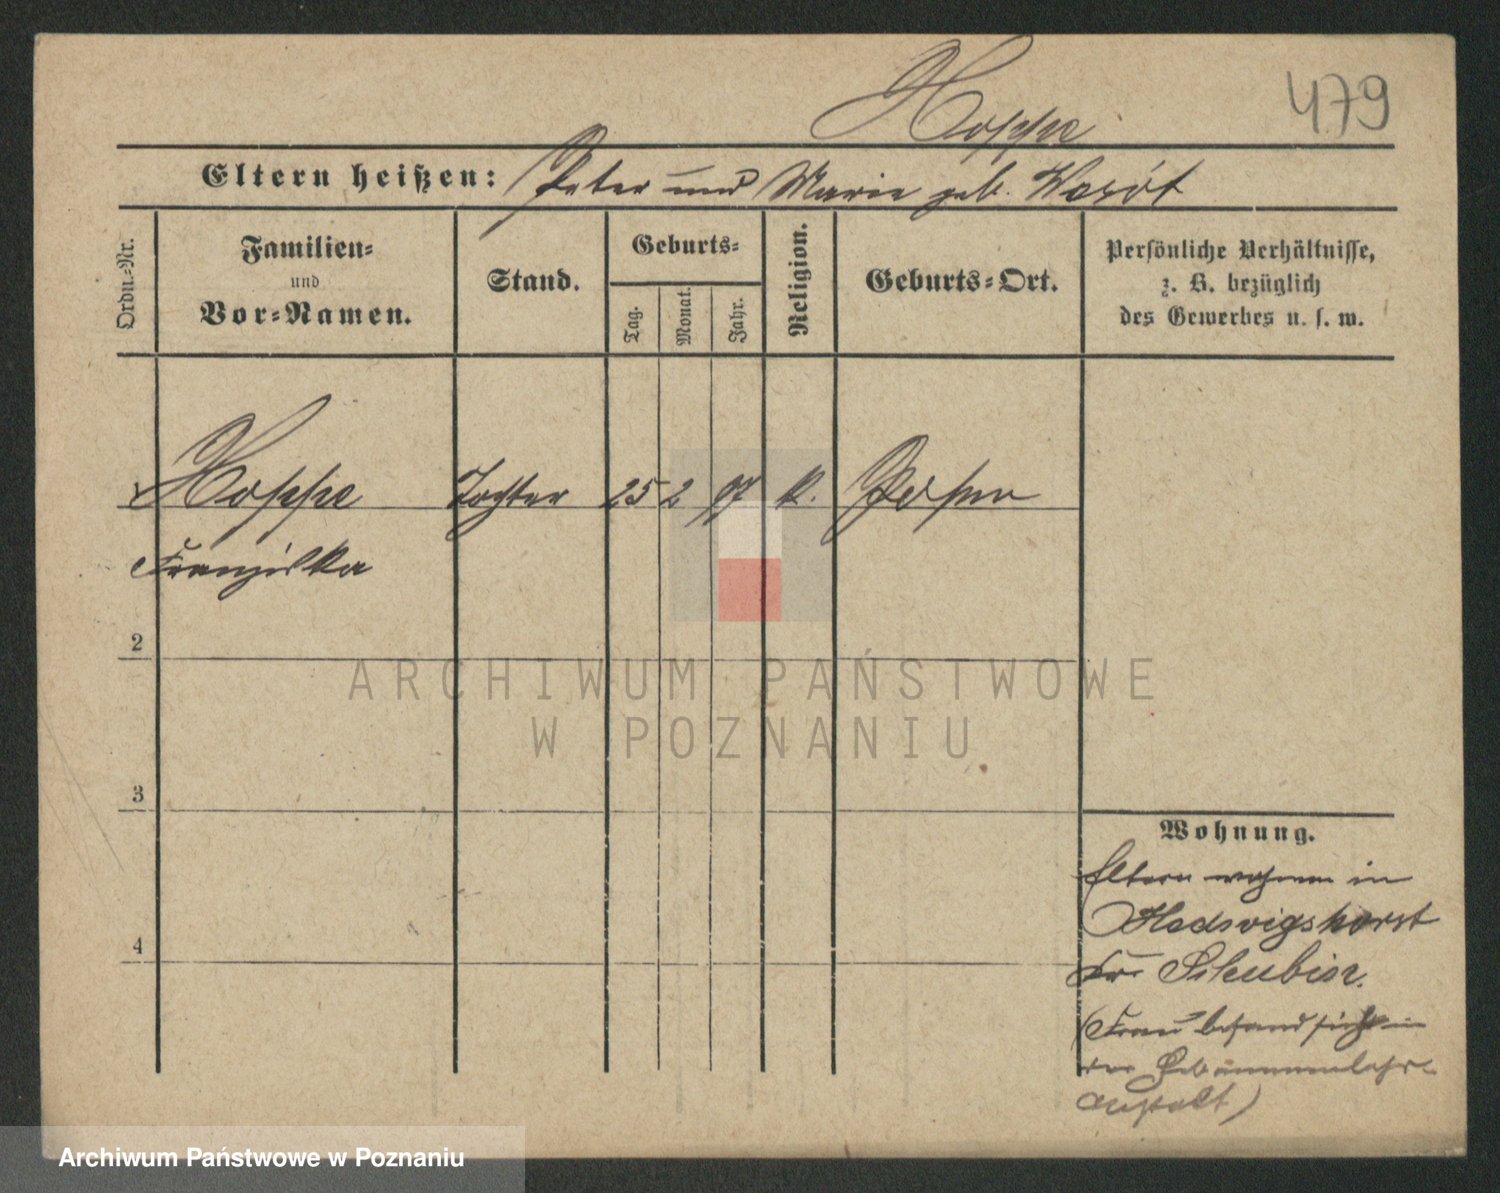 Hoppe
479
Eltern heißen: Peter und Marie geb. Wozót
Ordn.-Nr.
Familien-
und
Vor-Namen.
Stand.
Geburts-
Tag.
Monat.
Jahr.
Religion.
Geburts-Ort.
Persönliche Verhältnisse,
z. B. bezüglich
des Gewerbes u. s. w.
1 Hoppe Tochter 25 2 97 k. Posen
Franziska
2
3
4
Wohnung.
Eltern wohnen in
Hedwigshorst
Kr. Schubin.
(Frau befand sich in
der Hebammenlehr-
anstalt)
ARCHIWUM PAŃSTWOWE
W POZNANIU
Archiwum Państwowe w Poznaniu